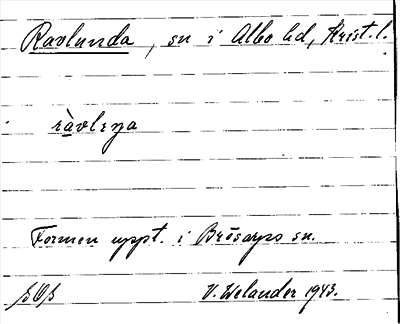 Ravlunda, sn i Albo hd, Krist. l.
ràvlena
Formen uppt. i Brösarps sn.
SOS V. Welander 1943.